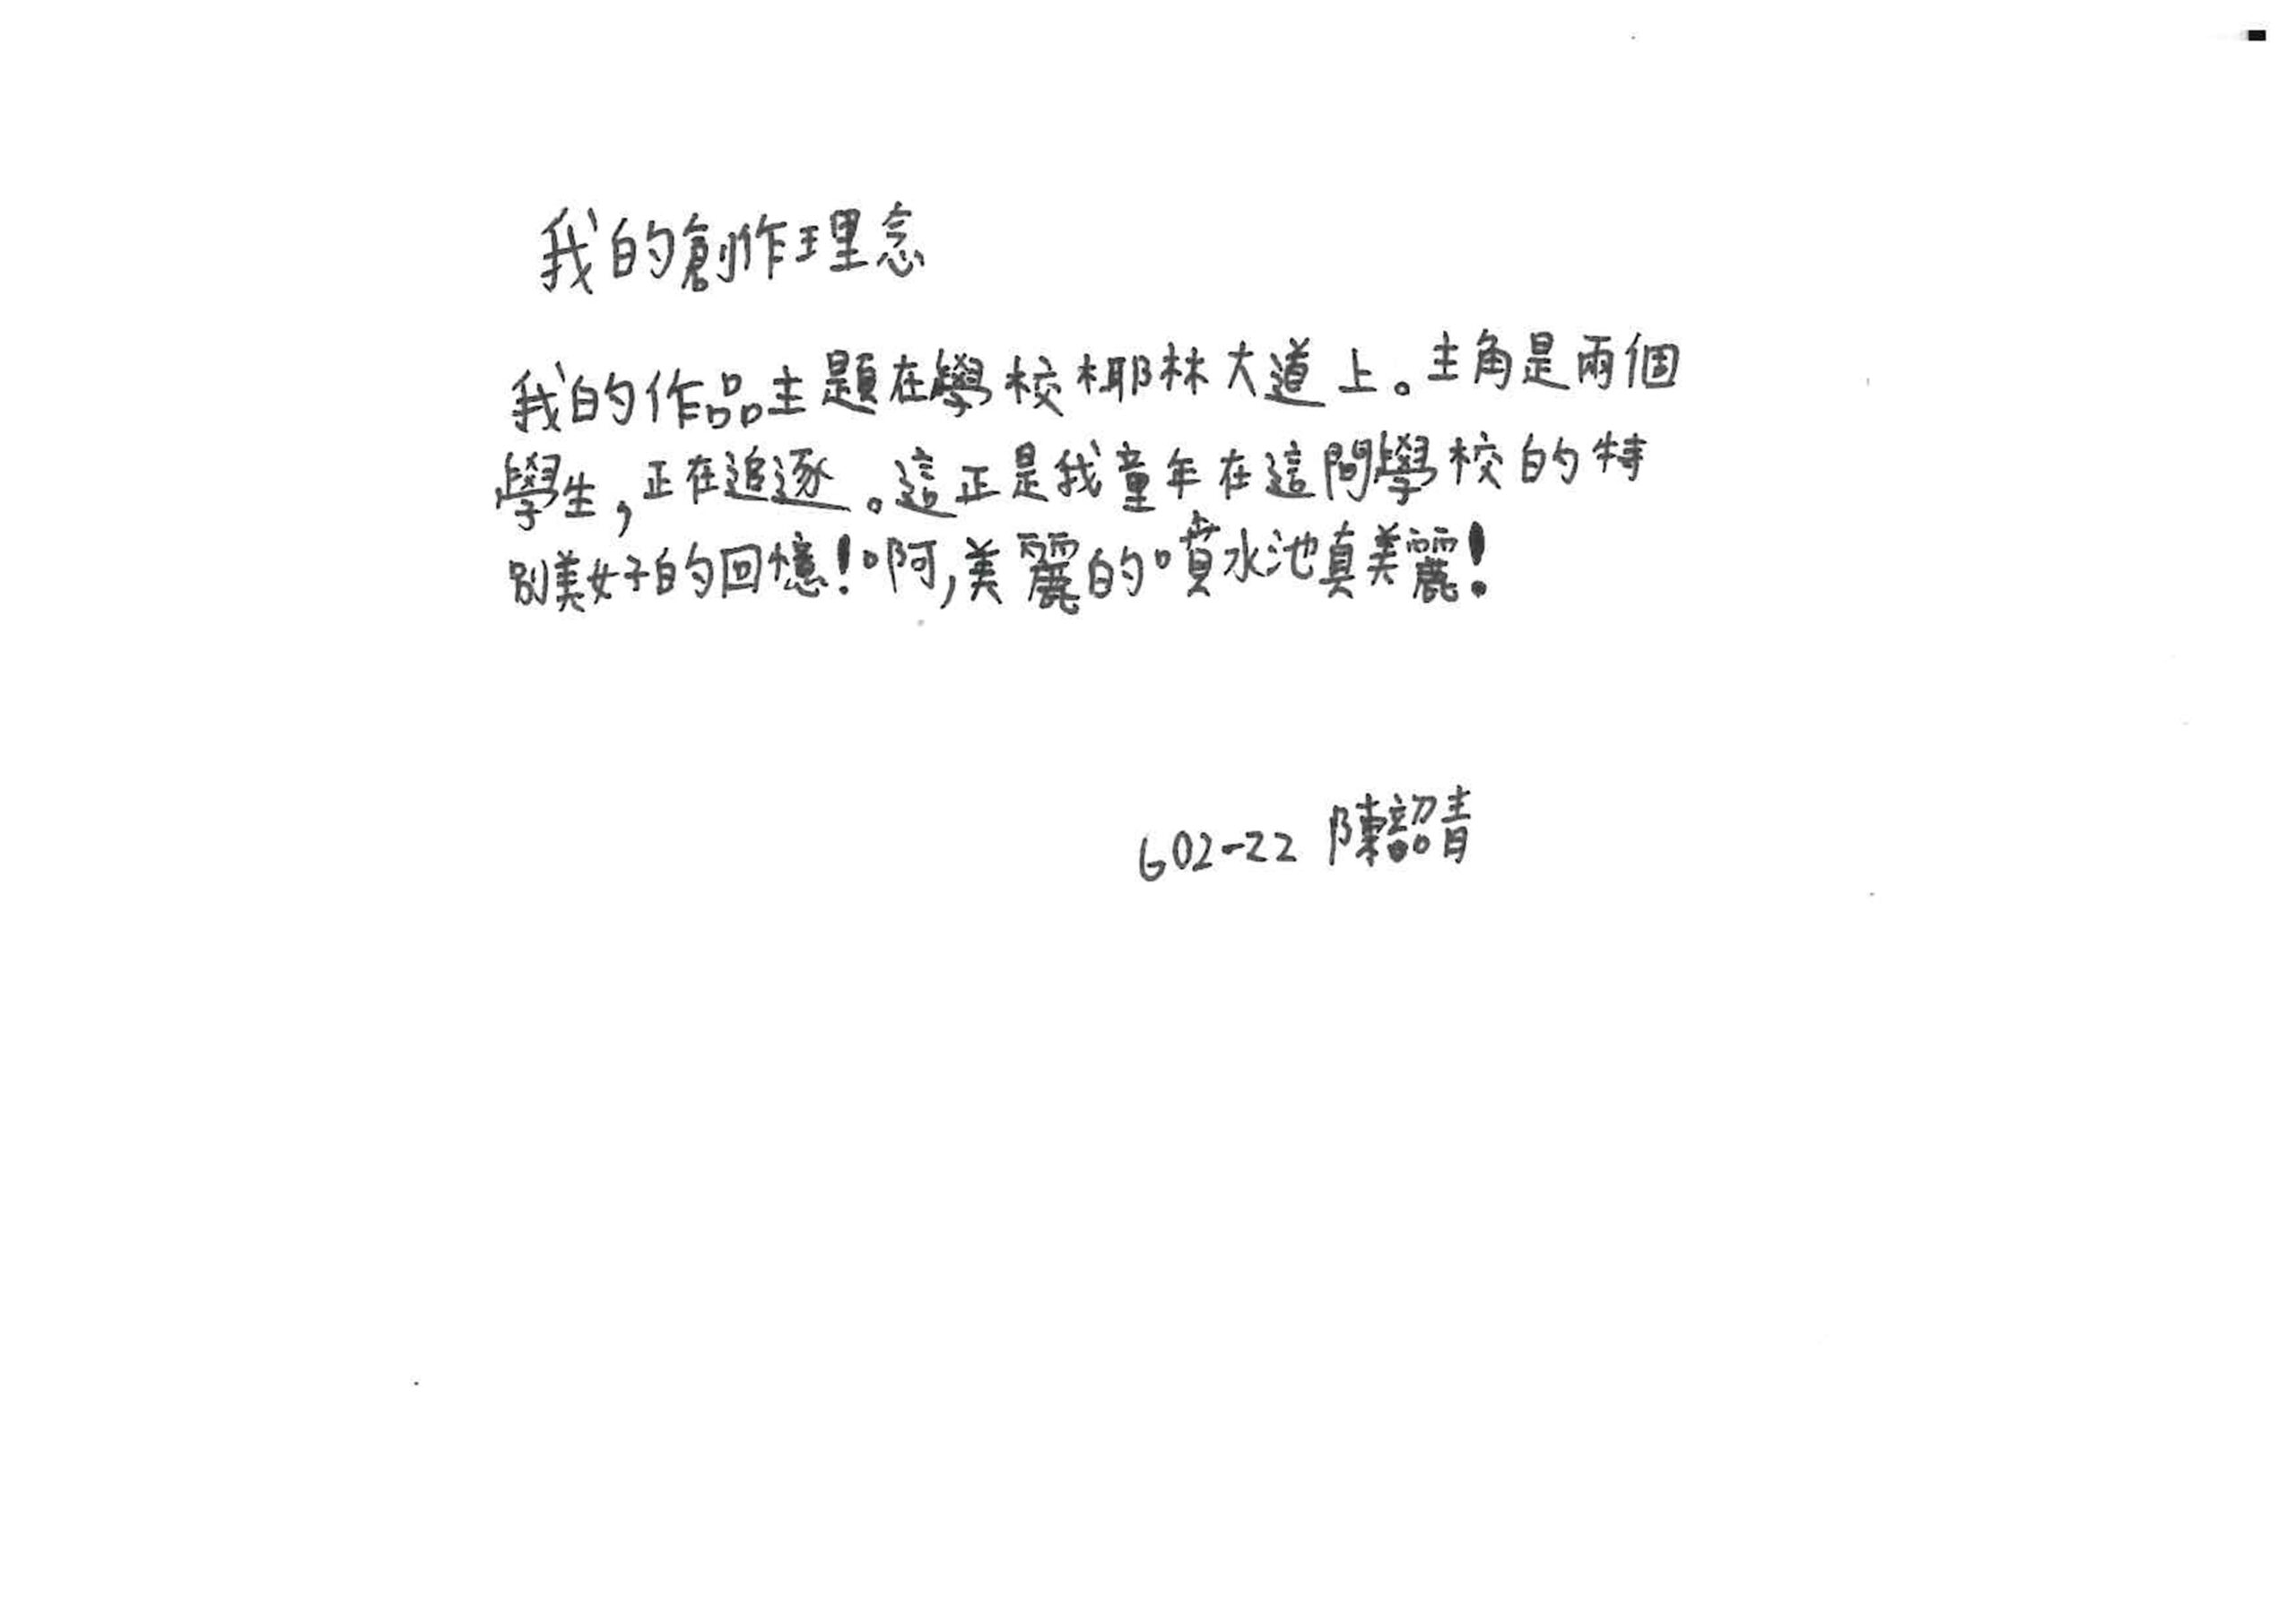 我的創作理念
我的作品主題在學校椰林大道上。主角是兩個
學生,正在追逐。這正是我童年在這間學校的特
別美好的回憶!啊,美麗的噴水池真美麗!
602-22 陳韶青